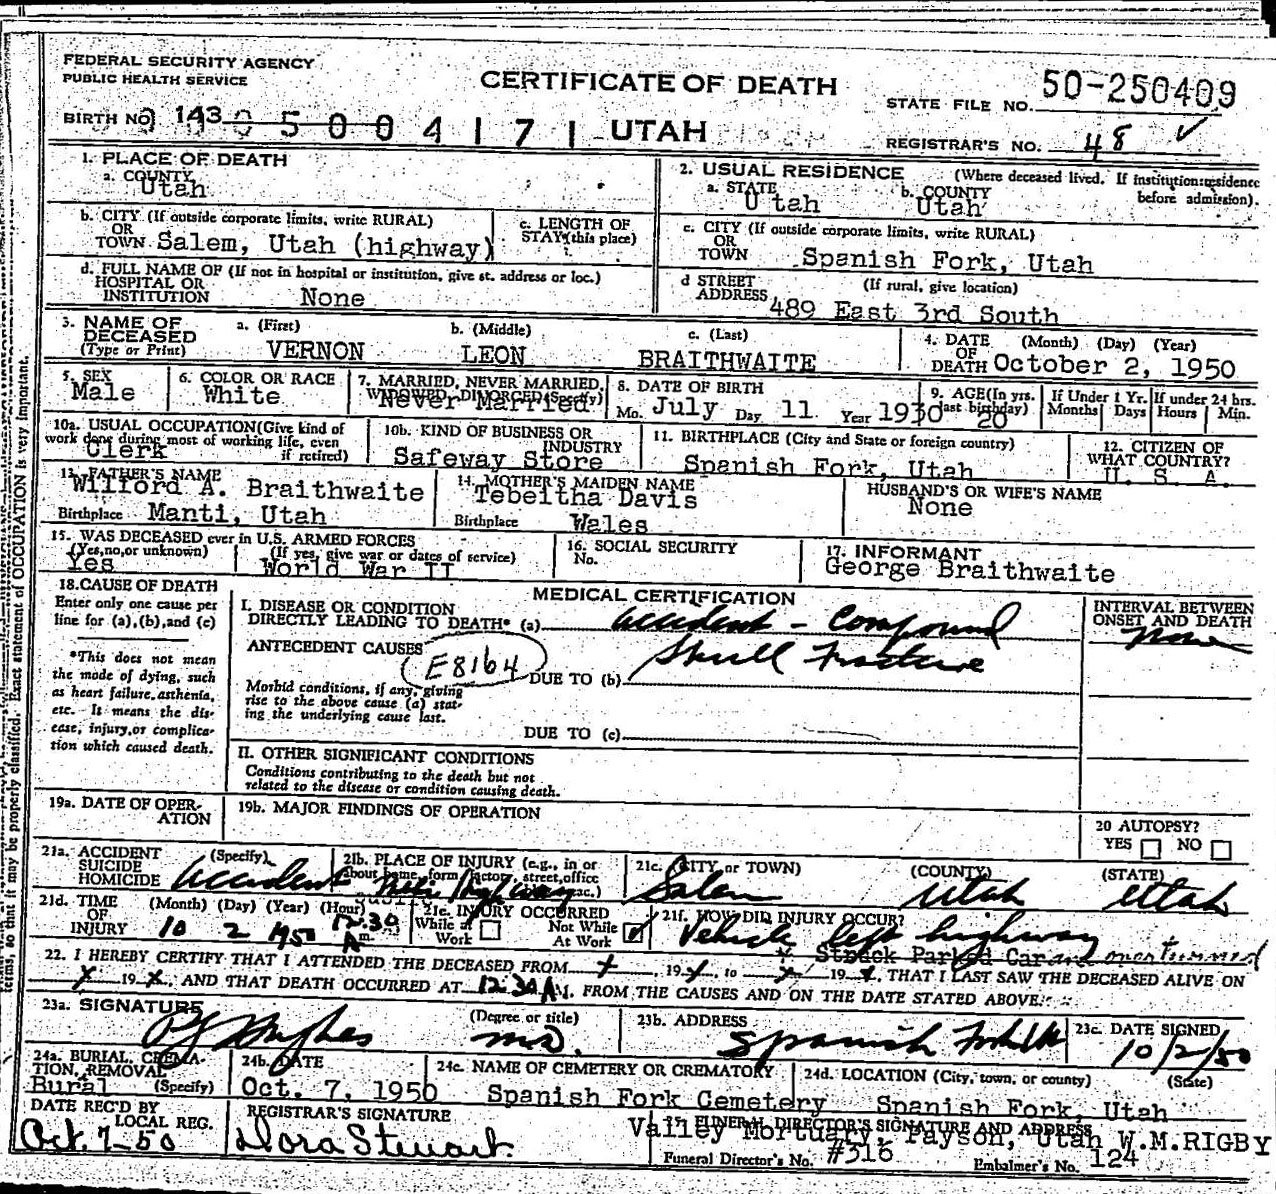 FEDERAL SECURITY AGENCY
PUBLIC HEALTH SERVICE
CERTIFICATE OF DEATH
STATE FILE NO. 50-250409
BIRTH NO. 143 0 5 0 0 4 1 7 1 UTAH
REGISTRAR'S NO. 48 ✓
1. PLACE OF DEATH
a. COUNTY
Utah
2. USUAL RESIDENCE (Where deceased lived. If institution: residence before admission).
a. STATE Utah
b. COUNTY Utah
b. CITY (If outside corporate limits, write RURAL)
OR
TOWN Salem, Utah (highway)
c. LENGTH OF STAY (this place)
c. CITY (If outside corporate limits, write RURAL)
OR
TOWN Spanish Fork, Utah
d. FULL NAME OF (If not in hospital or institution, give st. address or loc.)
HOSPITAL OR
INSTITUTION None
d STREET ADDRESS (If rural, give location)
489 East 3rd South
3. NAME OF DECEASED
(Type or Print)
a. (First) VERNON
b. (Middle) LEON
c. (Last) BRAITHWAITE
4. DATE OF DEATH (Month) (Day) (Year)
October 2, 1950
5. SEX
Male
6. COLOR OR RACE
White
7. MARRIED, NEVER MARRIED, WIDOWED, DIVORCED (Specify)
Never Married
8. DATE OF BIRTH
Mo. July Day 11 Year 1930
9. AGE (In yrs. last birthday)
20
If Under 1 Yr. Months Days
If under 24 hrs. Hours Min.
10a. USUAL OCCUPATION (Give kind of work done during most of working life, even if retired)
Clerk
10b. KIND OF BUSINESS OR INDUSTRY
Safeway Store
11. BIRTHPLACE (City and State or foreign country)
Spanish Fork, Utah
12. CITIZEN OF WHAT COUNTRY?
U. S. A.
13. FATHER'S NAME
Wilford A. Braithwaite
Birthplace Manti, Utah
14. MOTHER'S MAIDEN NAME
Tebeitha Davis
Birthplace Wales
HUSBAND'S OR WIFE'S NAME
None
15. WAS DECEASED ever in U.S. ARMED FORCES
(Yes, no, or unknown) (If yes, give war or dates of service)
Yes World War II
16. SOCIAL SECURITY No.
17. INFORMANT
George Braithwaite
18. CAUSE OF DEATH
Enter only one cause per line for (a), (b), and (c)
*This does not mean the mode of dying, such as heart failure, asthenia, etc. It means the disease, injury, or complication which caused death.
MEDICAL CERTIFICATION
I. DISEASE OR CONDITION
DIRECTLY LEADING TO DEATH* (a) Accident - Compound
Skull Fracture
ANTECEDENT CAUSES
E8164
DUE TO (b)
Morbid conditions, if any, giving rise to the above cause (a) stating the underlying cause last.
DUE TO (c)
II. OTHER SIGNIFICANT CONDITIONS
Conditions contributing to the death but not related to the disease or condition causing death.
INTERVAL BETWEEN ONSET AND DEATH
None
19a. DATE OF OPERATION
19b. MAJOR FINDINGS OF OPERATION
20 AUTOPSY?
YES NO
21a. ACCIDENT SUICIDE HOMICIDE (Specify)
Accident
21b. PLACE OF INJURY (e.g., in or about home, farm, factory, street, office
Highway
21c. (CITY or TOWN) (COUNTY) (STATE)
Salem Utah Utah
21d. TIME OF INJURY (Month) (Day) (Year) (Hour)
10 2 1950 12:30 A m.
21e. INJURY OCCURRED
While at Work Not While At Work
21f. HOW DID INJURY OCCUR?
Vehicle left highway
Struck Parked Car and overturned
22. I HEREBY CERTIFY THAT I ATTENDED THE DECEASED FROM x, 19 x, to x, 19 x, THAT I LAST SAW THE DECEASED ALIVE ON
x 19 x, AND THAT DEATH OCCURRED AT 12:30 A M. FROM THE CAUSES AND ON THE DATE STATED ABOVE.
23a. SIGNATURE (Degree or title)
Hughes M.D.
23b. ADDRESS
Spanish Fork
23c. DATE SIGNED
10/2/50
24a. BURIAL, CREMATION, REMOVAL (Specify)
Bural
24b. DATE
Oct. 7, 1950
24c. NAME OF CEMETERY OR CREMATORY
Spanish Fork Cemetery
24d. LOCATION (City, town, or county) (State)
Spanish Fork, Utah
DATE REC'D BY LOCAL REG.
Oct. 7-50
REGISTRAR'S SIGNATURE
Dora Stewart
FUNERAL DIRECTOR'S SIGNATURE AND ADDRESS
Valley Mortuary, Payson, Utah W.M.RIGBY
Funeral Director's No. #316 Embalmer's No. 124
items, so that it may be properly classified. Exact statement of OCCUPATION is very important.